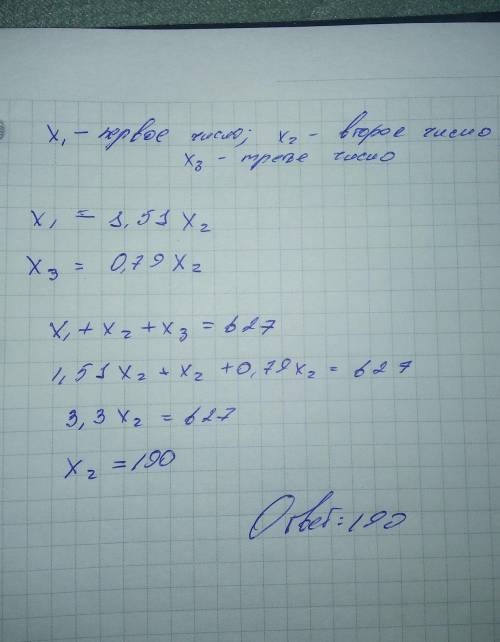 x₁ – первое число; x₂ – второе число
x₃ – третье число
x₁ = 1,51 x₂
x₃ = 0,79 x₂
x₁ + x₂ + x₃ = 627
1,51 x₂ + x₂ + 0,79 x₂ = 627
3,3 x₂ = 627
x₂ = 190
Ответ: 190